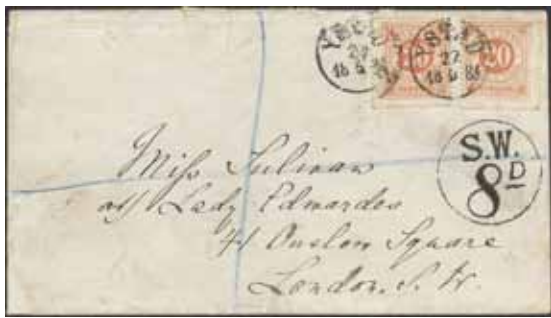 YSTAD
27
20
S.W.
8D
Miss Sulivan
Lady Edwardes
41 Onslow Square
London. S. W.